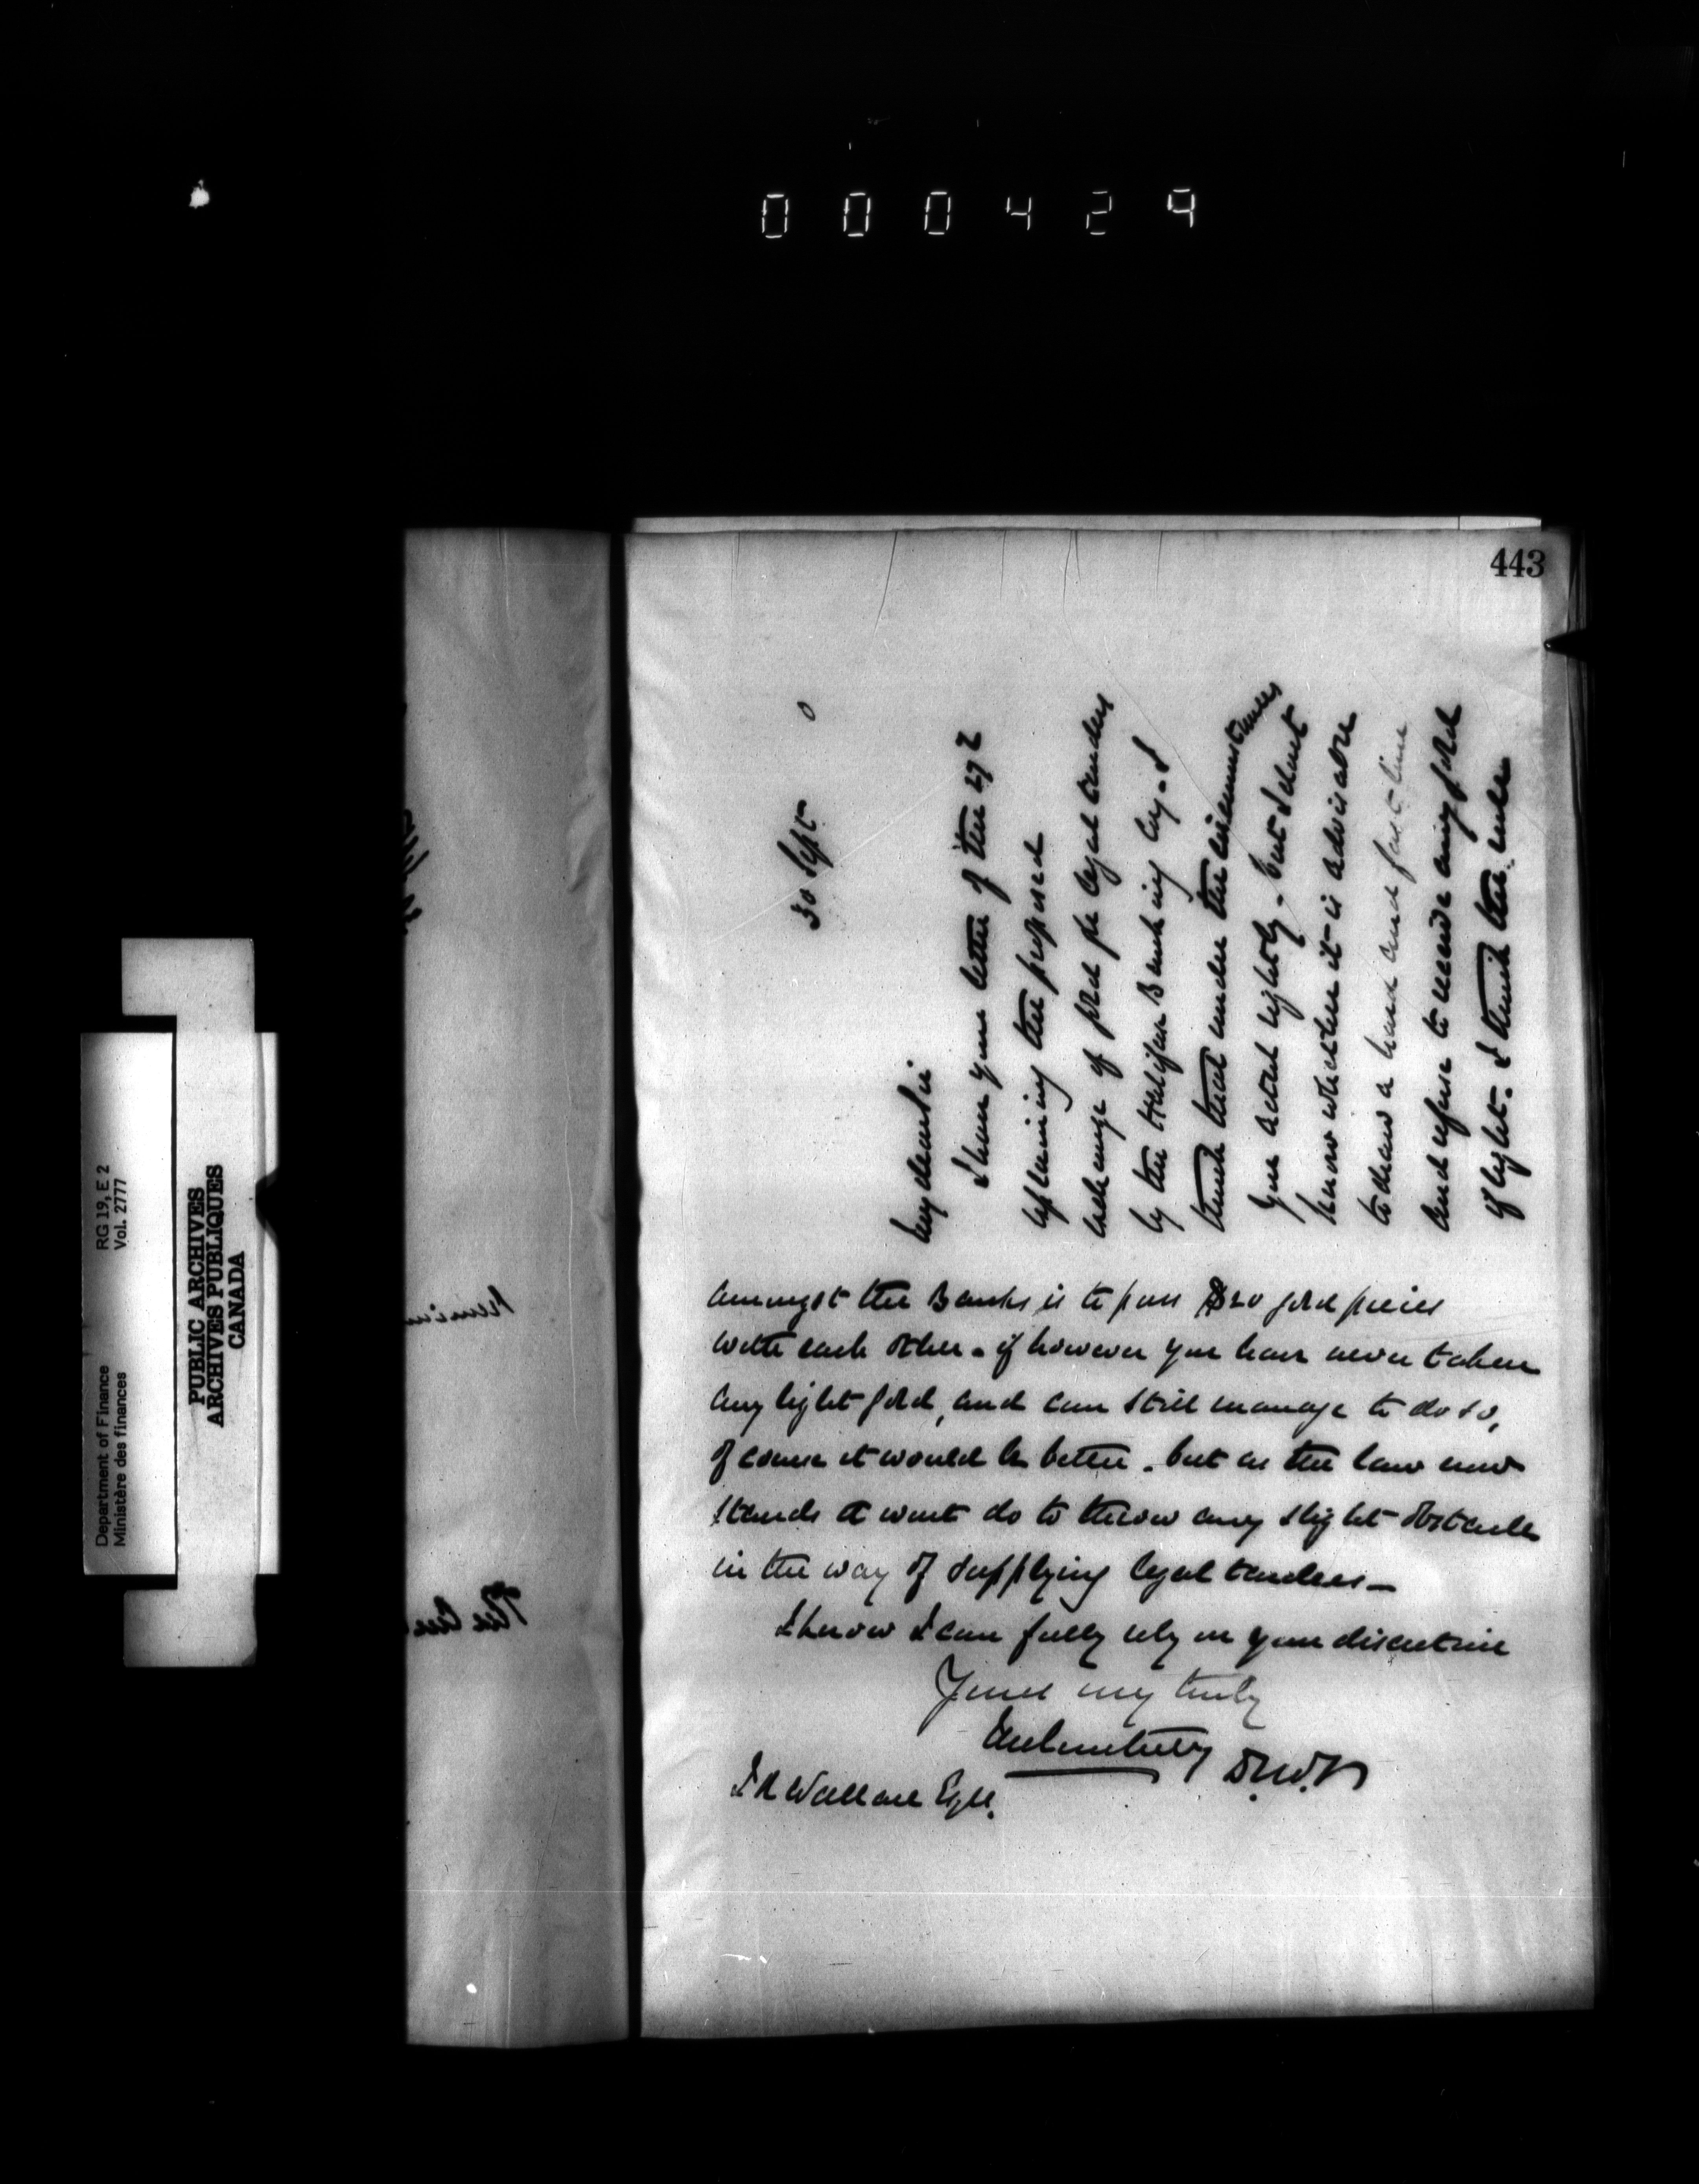 000429
443
30 Sept
0
My dear Sir
I have your letter of the 27
explaining the proposed
exchange of gold for legal tenders
by the Halifax Banking Coy. I
think that under the circumstances
you acted rightly. but I don't
know whether it is advisable
to draw a hard and fast line
and refuse to receive any gold
if light. I think the rule
amongst the Banks is to pass $20 gold pieces
with each other. if however you have never taken
any light gold, and can still manage to do so,
of course it would be better. but as the law now
stands it wont do to throw any slight obstacle
in the way of supplying legal tenders—
I know I can fully rely on your discretion
Yours very truly
J R Wallace Esq.
Department of Finance RG 19, E 2
Ministère des finances Vol. 2777
PUBLIC ARCHIVES
ARCHIVES PUBLIQUES
CANADA